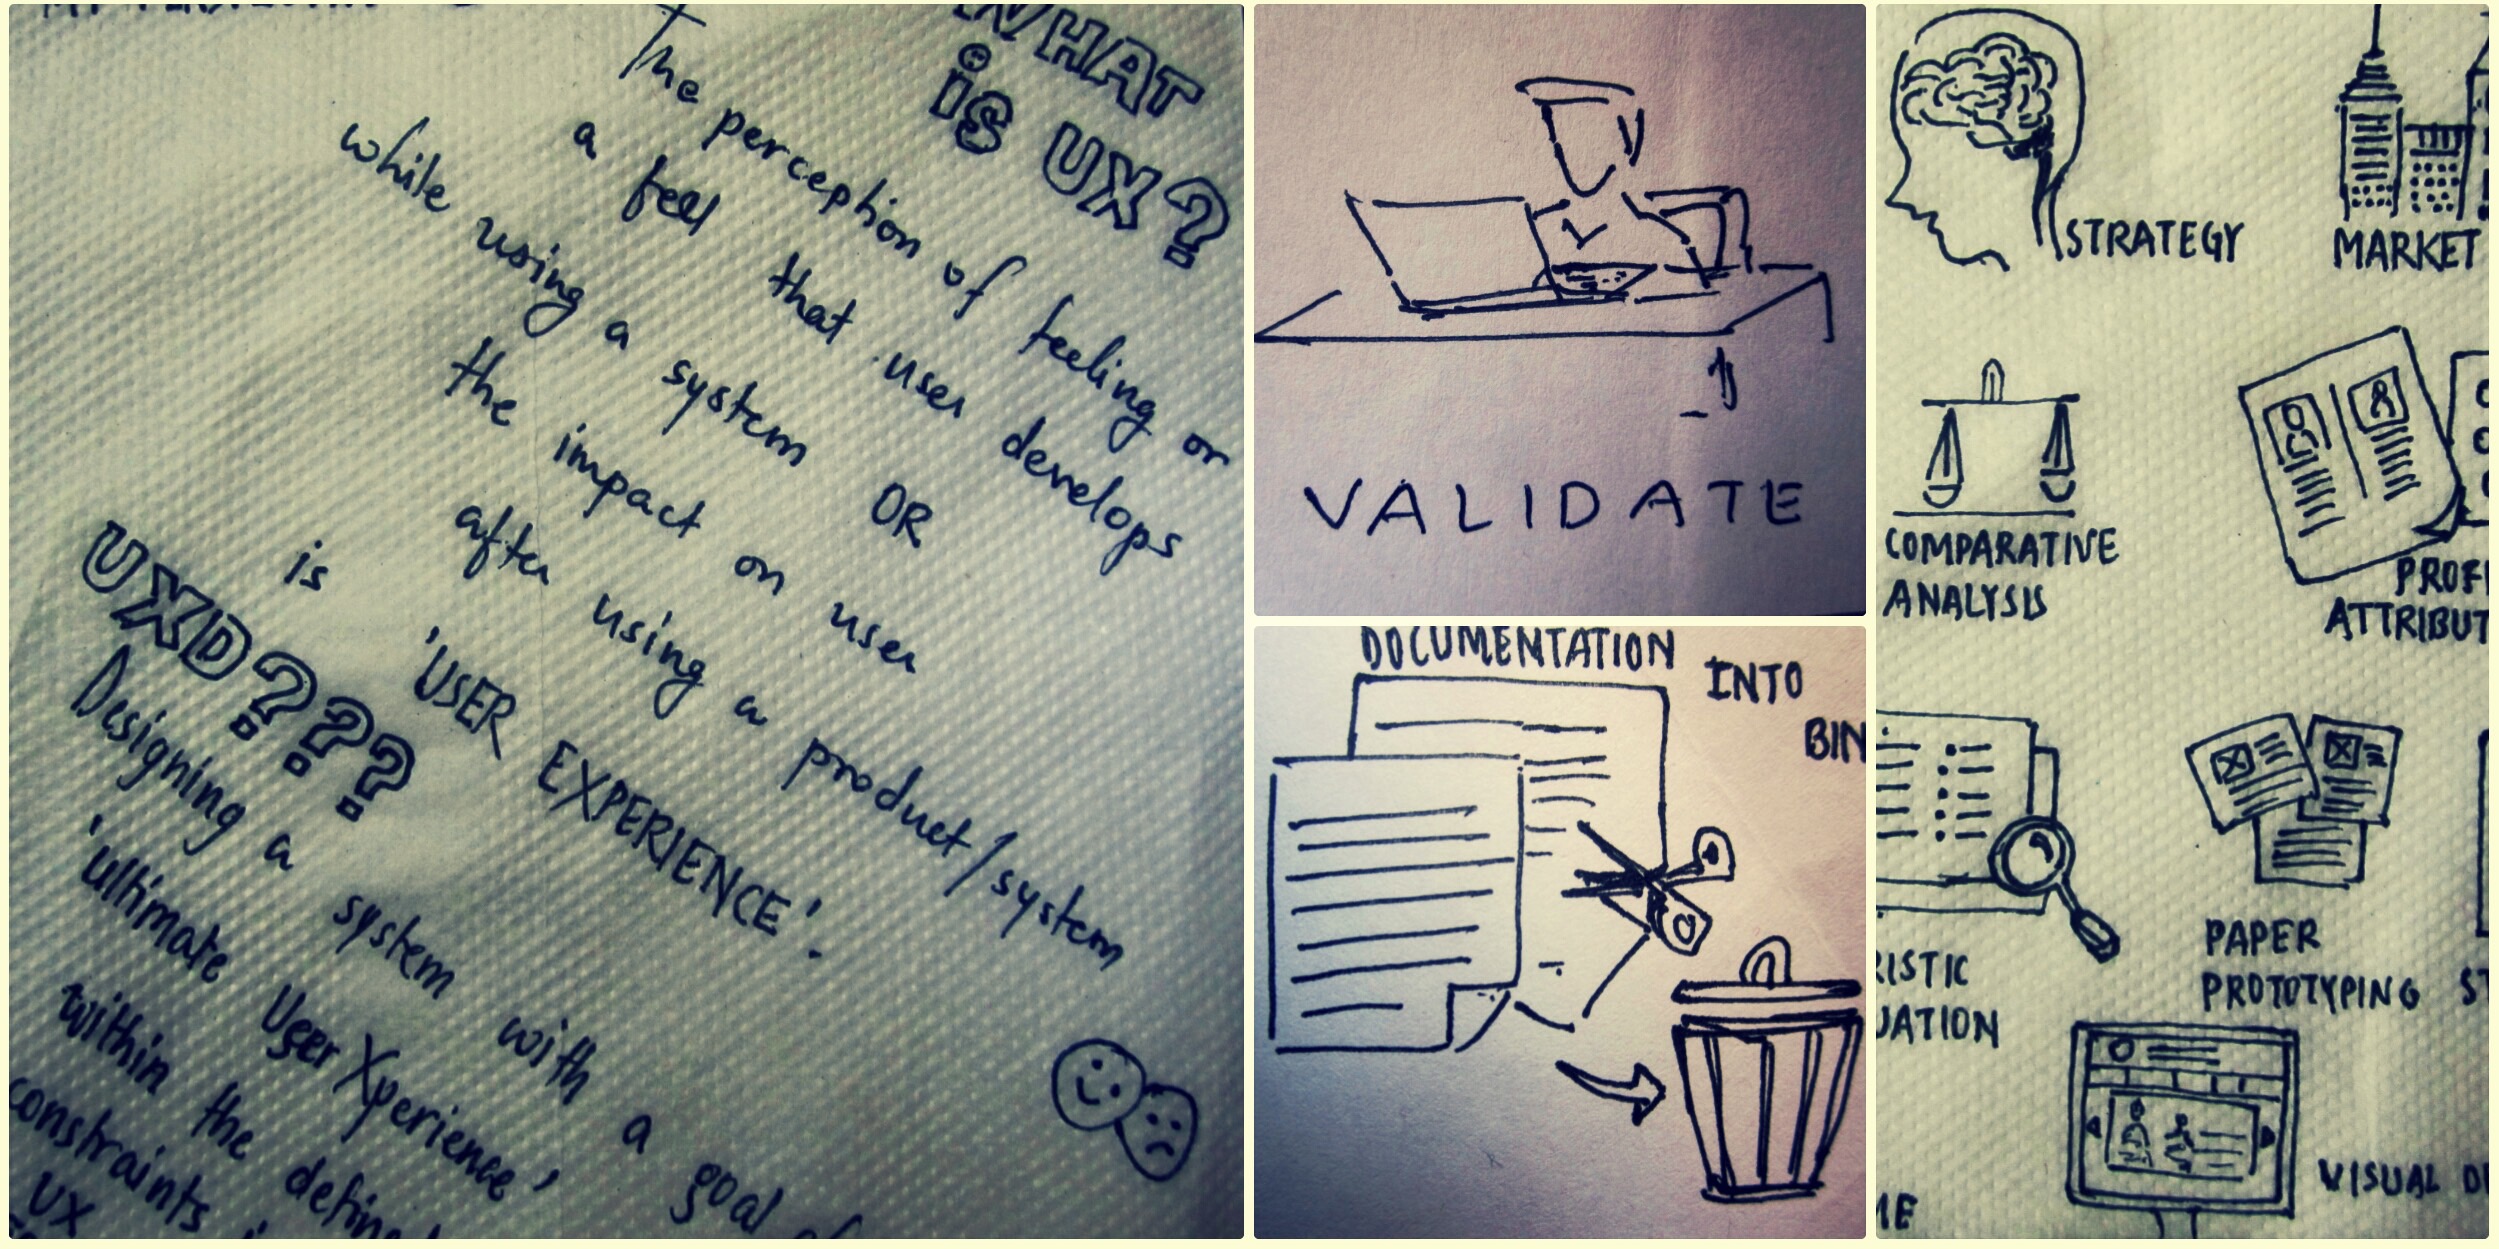 WHAT
is UX?
The perception of feeling or
a feel that user develops
while using a system OR
the impact on user
after using a product/system
is 'USER EXPERIENCE'.
UXD???
Designing a system with a goal
'ultimate User Xperience'
within the
constraints
UX
VALIDATE
DOCUMENTATION
INTO
BIN
STRATEGY
MARKET
COMPARATIVE
ANALYSIS
PROFI
ATTRIBUT
RISTIC
UATION
PAPER
PROTOTYPING
ST
VISUAL D
ME